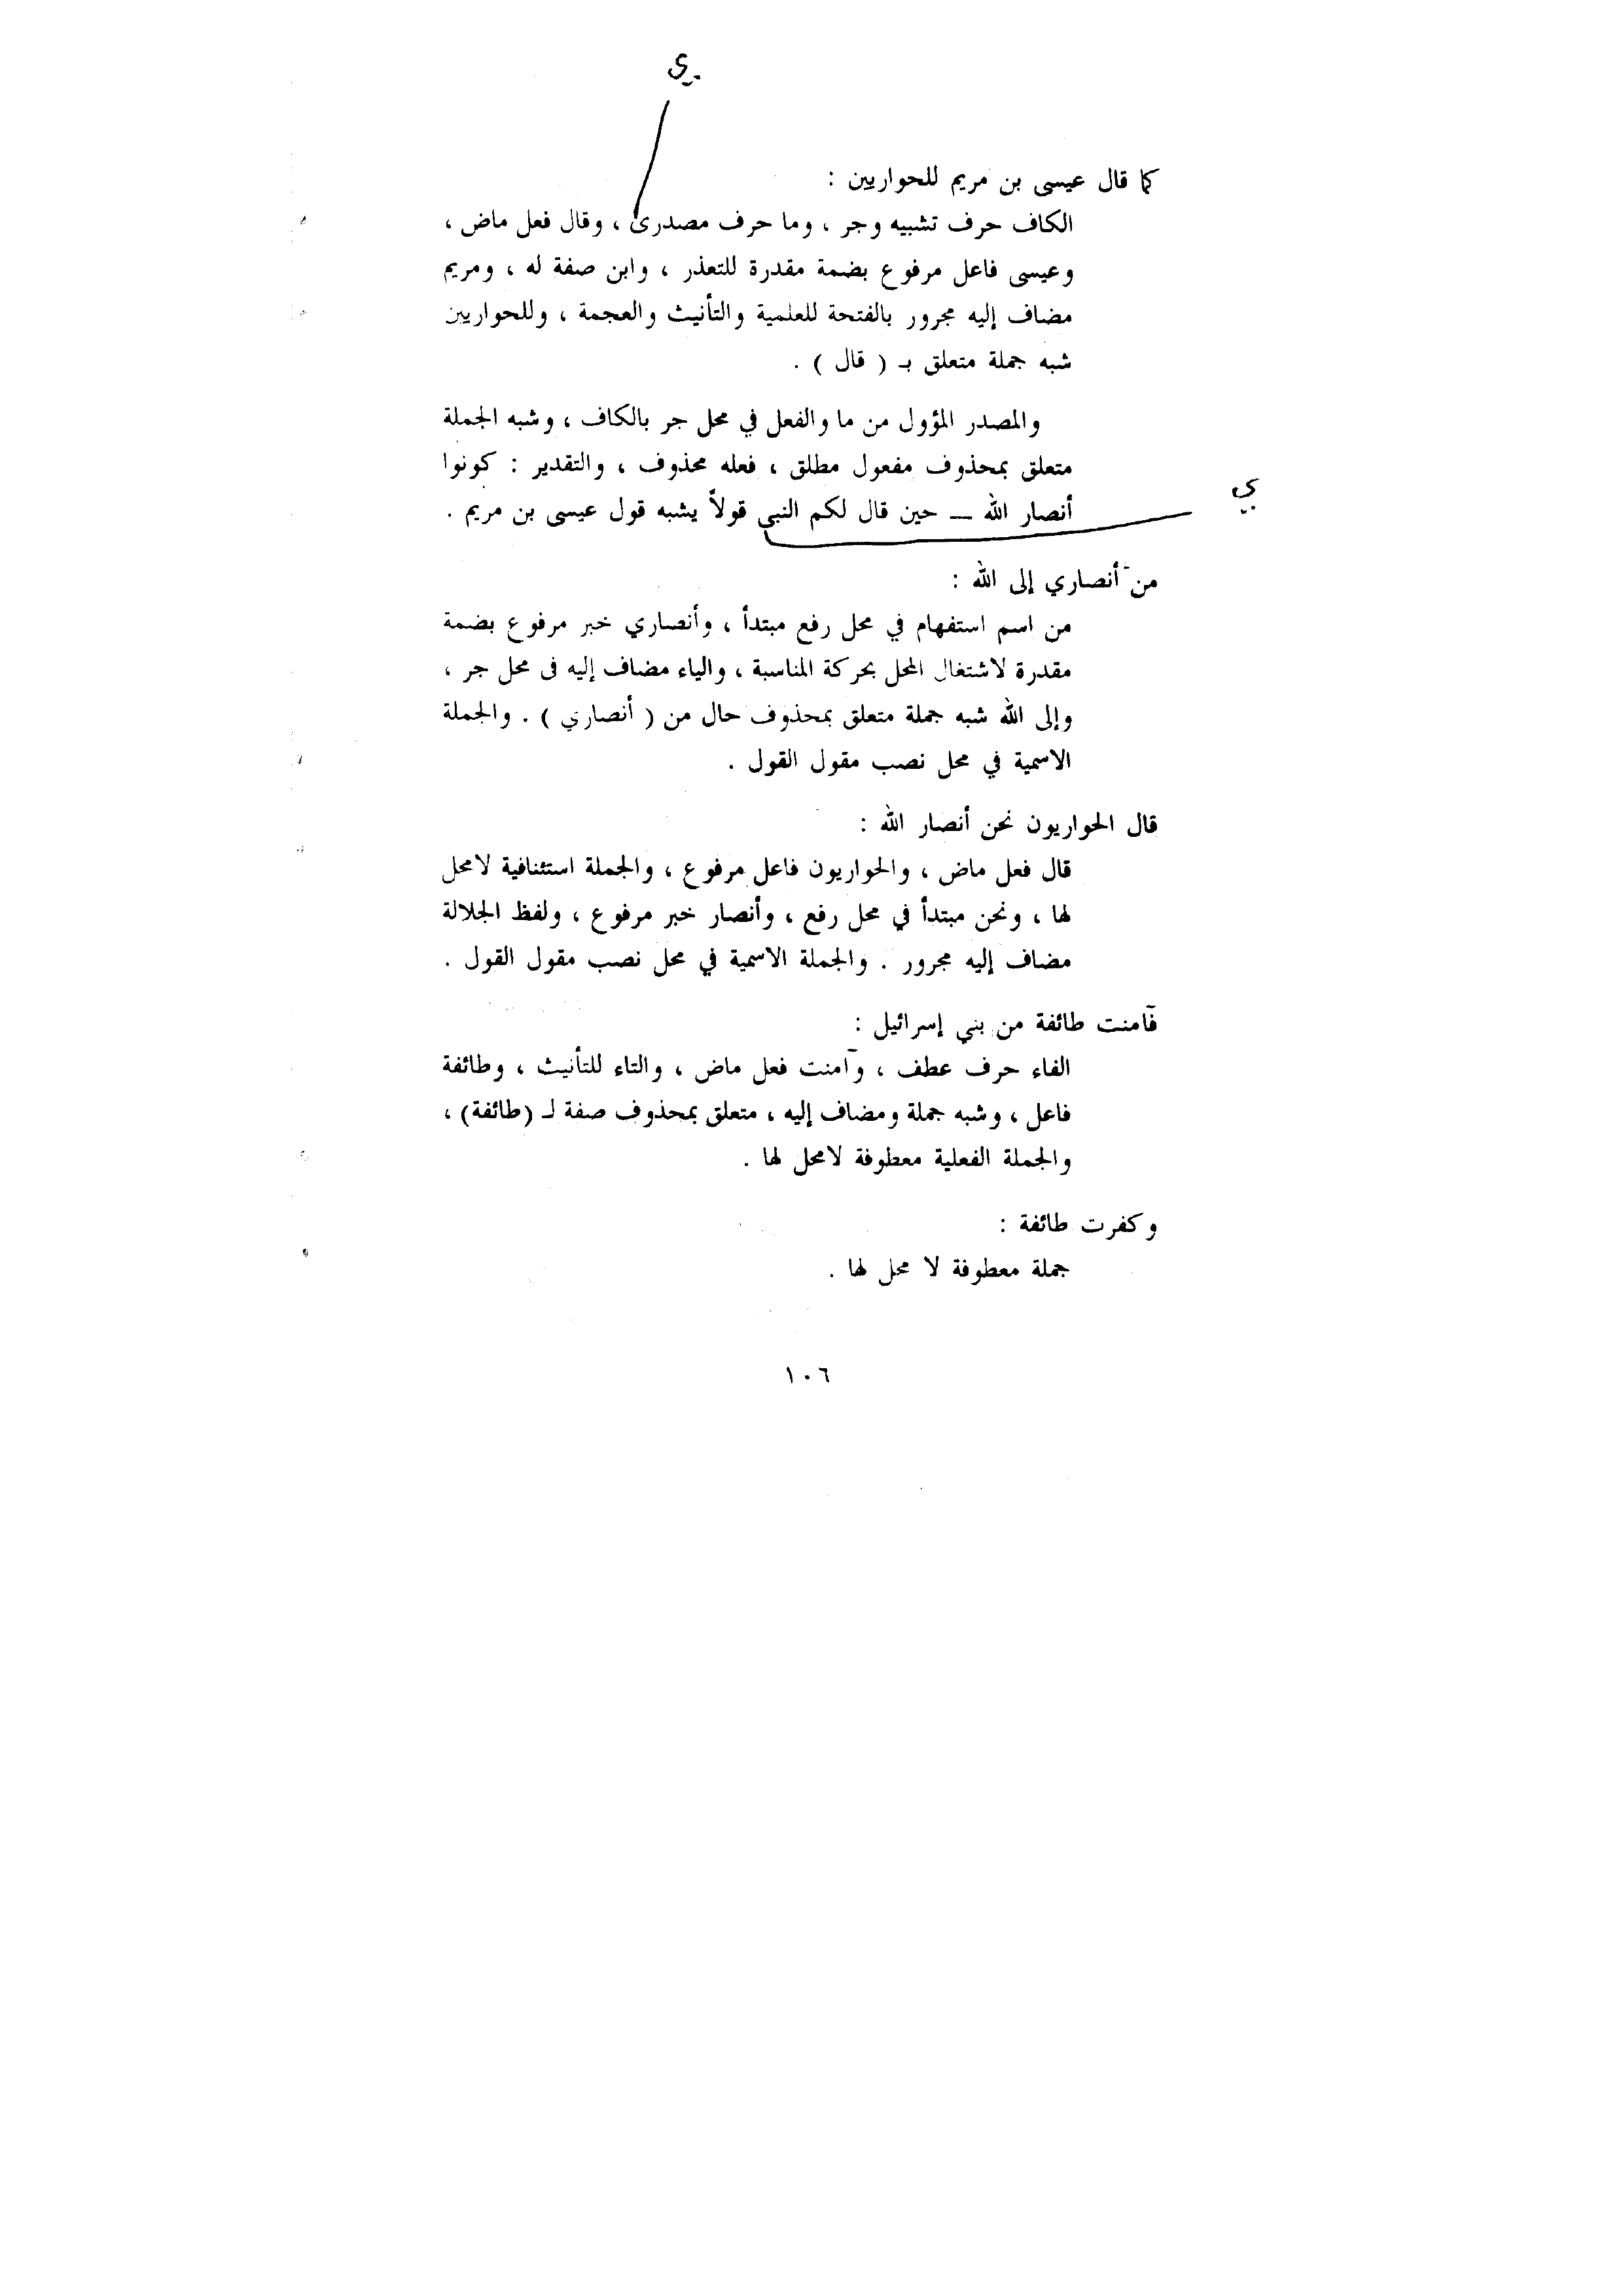 ي
كما قال عيسى بن مريم للحواريين :
الكاف حرف تشبيه وجر ، وما حرف مصدرى ، وقال فعل ماض ،
وعيسى فاعل مرفوع بضمة مقدرة للتعذر ، وابن صفة له ، ومريم
مضاف إليه مجرور بالفتحة للعلمية والتأنيث والعجمة ، وللحواريين
شبه جملة متعلق بـ ( قال ) .
والمصدر المؤول من ما والفعل في محل جر بالكاف ، وشبه الجملة
متعلق بمحذوف مفعول مطلق ، فعله محذوف ، والتقدير : كونوا
ي
أنصار الله ــ حين قال لكم النبى قولاً يشبه قول عيسى بن مريم .
من أنصاري إلى الله :
من اسم استفهام في محل رفع مبتدأ ، وأنصاري خبر مرفوع بضمة
مقدرة لاشتغال المحل بحركة المناسبة ، والياء مضاف إليه فى محل جر ،
وإلى الله شبه جملة متعلق بمحذوف حال من ( أنصاري ) . والجملة
الاسمية في محل نصب مقول القول .
قال الحواريون نحن أنصار الله :
قال فعل ماض ، والحواريون فاعل مرفوع ، والجملة استئنافية لامحل
لها ، ونحن مبتدأ في محل رفع ، وأنصار خبر مرفوع ، ولفظ الجلالة
مضاف إليه مجرور . والجملة الاسمية في محل نصب مقول القول .
فآمنت طائفة من بني إسرائيل :
الفاء حرف عطف ، وآمنت فعل ماض ، والتاء للتأنيث ، وطائفة
فاعل ، وشبه جملة ومضاف إليه ، متعلق بمحذوف صفة لـ (طائفة) ،
والجملة الفعلية معطوفة لامحل لها .
وكفرت طائفة :
جملة معطوفة لا محل لها .
١٠٦